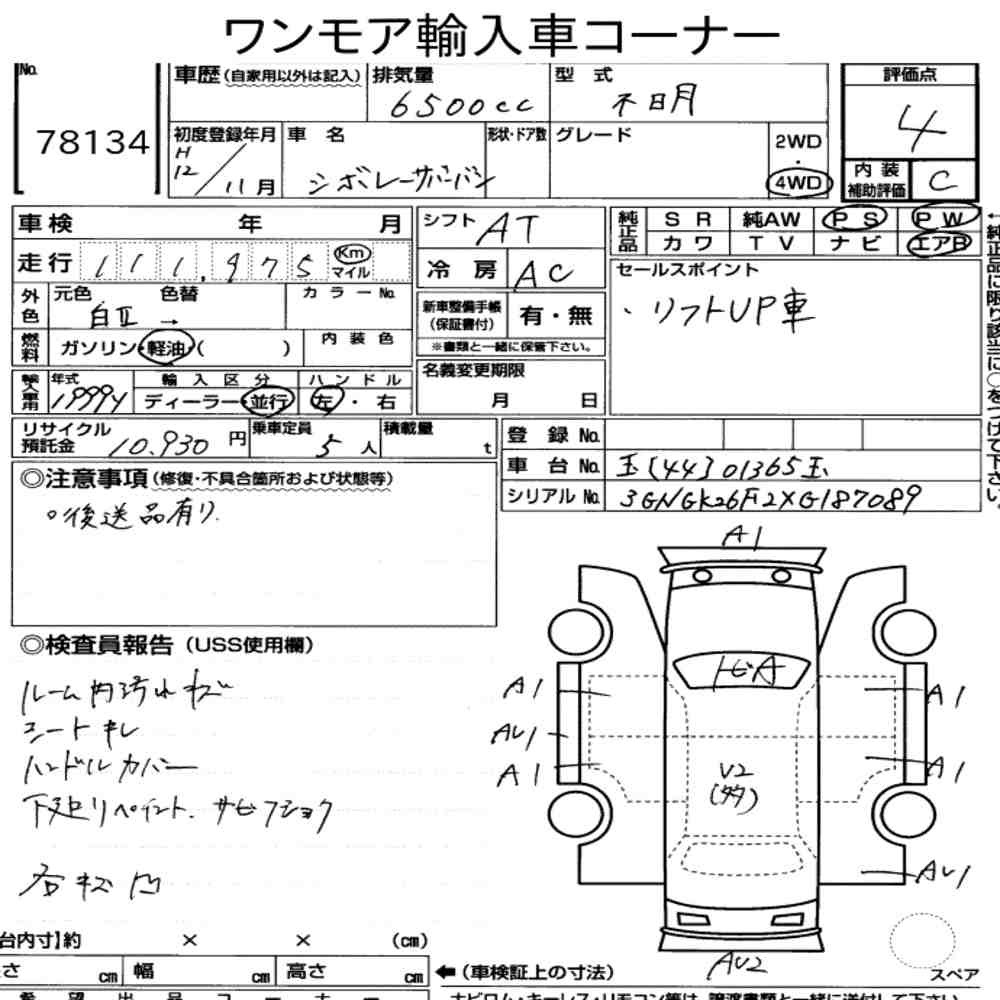 ワンモア輸入車コーナー
No.
78134
車歴(自家用以外は記入)
排気量
6500cc
型式
不明
評価点
4
初度登録年月
H12/11月
車名
シボレーサバーバン
形状・ドア数
グレード
2WD
・
4WD
内装補助評価
C
車検 年 月
シフト
AT
純正品
SR 純AW PS PW
カワ TV ナビ エアB
走行
111,975
Km
マイル
冷房
AC
セールスポイント
・リフトUP車
外色
元色
色替
カラーNo.
白II →
新車整備手帳(保証書付)
有・無
※書類と一緒に保管下さい。
燃料
ガソリン・軽油・( )
内装色
輸入車用
年式
1999y
輸入区分
ディーラー・並行
ハンドル
左・右
名義変更期限
月 日
リサイクル預託金
10.930円
乗車定員
5人
積載量
t
登録No.
車台No.
玉[44]01365玉
シリアルNo.
3GNGK26F2XG187089
←純正品に限り該当に○をつけて下さい。
◎注意事項(修復・不具合箇所および状態等)
○後送品有り.
◎検査員報告(USS使用欄)
ルーム内汚れキズ
シートキレ
ハンドルカバー
下廻りペイント.サビフショク
A1
トビA
A1
AU1
A1
A1
A1
U2
(多)
AU1
AU2
スペア
台内寸】約 × × (cm)
さ cm 幅 cm 高さ cm
←(車検証上の寸法)
希望出品コーナー
ナビロム・キーレス・リモコン等は、譲渡書類と一緒に送付して下さい